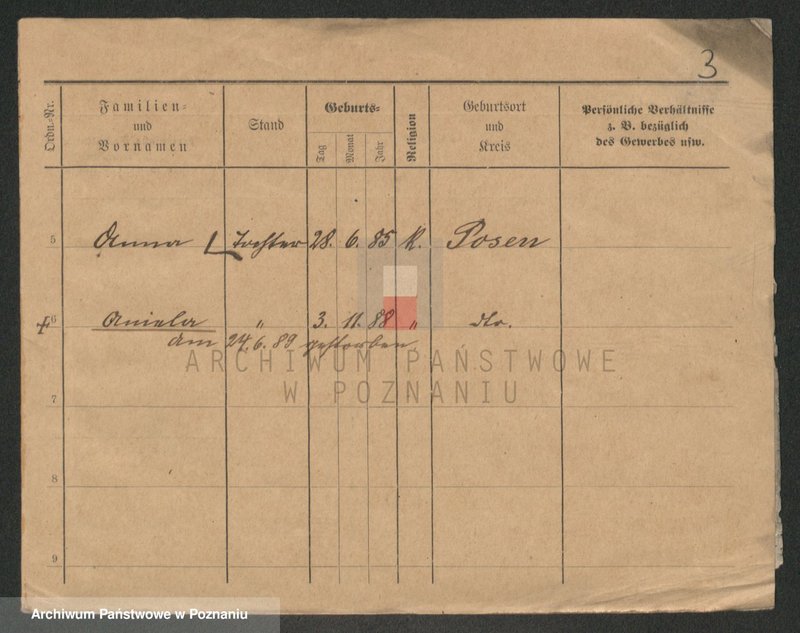 3
Ordn.-Nr.
Familien-
und
Vornamen
Stand
Geburts-
Tag
Monat
Jahr
Religion
Geburtsort
und
Kreis
Persönliche Verhältnisse
z. B. bezüglich
des Gewerbes usw.
5 Anna Tochter 28. 6. 85 K. Posen
+ 6 Aniela " 3. 11. 88 " dto.
am 24. 6. 89 gestorben.
ARCHIWUM PAŃSTWOWE
W POZNANIU
7
8
9
Archiwum Państwowe w Poznaniu